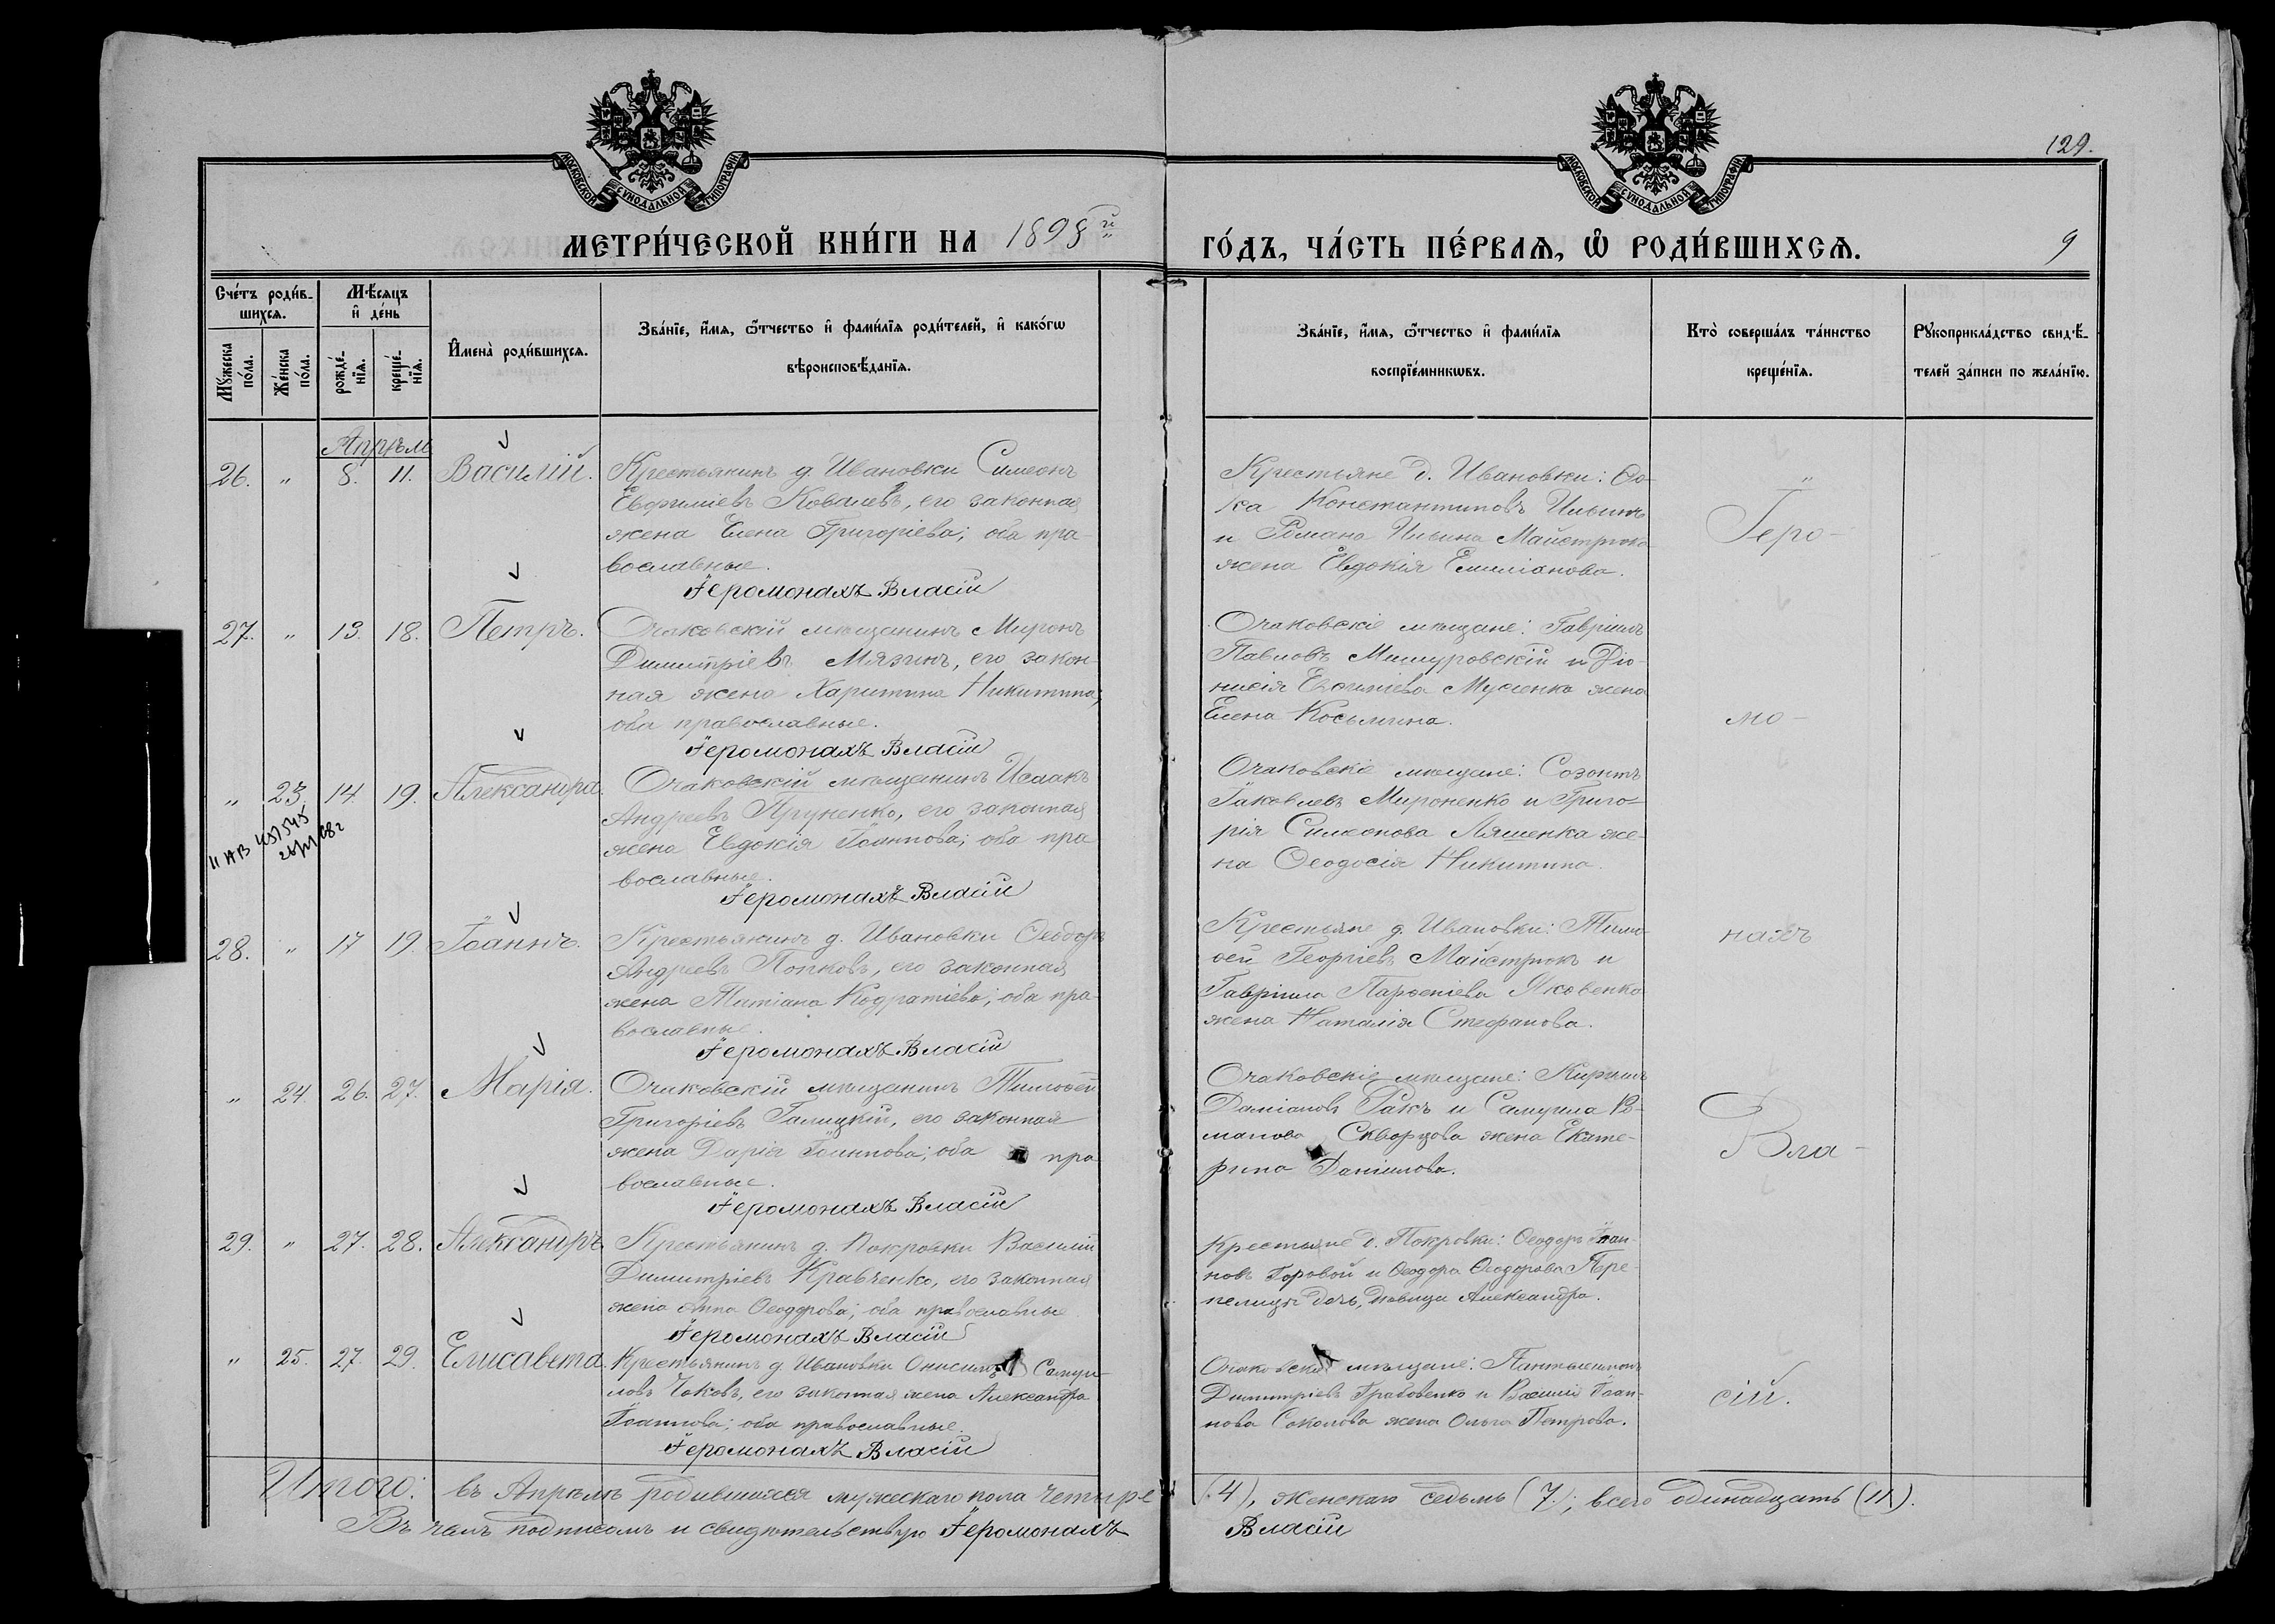 129.
МОСКОВСКОЙ СѴНОДАЛЬНОЙ ТИПОГРАФІИ
МОСКОВСКОЙ СѴНОДАЛЬНОЙ ТИПОГРАФІИ
МЕТРИ́ЧЕСКОЙ КНИ́ГИ НА 1898й ГО́ДЪ, ЧА́СТЬ ПЕ́РВАѦ, Ѡ҆ РОДИ́ВШИХСѦ. 9
Сче́тъ роди́в-
шихсѧ.
Мѣ́сѧцъ
и҆ де́нь
Мꙋ́жеска по́ла.
Же́нска по́ла.
рожде́-нїѧ.
креще́-нїѧ.
И҆мена̀ роди́вшихсѧ.
Зва́нїе, и҆́мѧ, ѻ҆́тчество и҆ фами́лїѧ роди́телей, и҆ како́гѡ
вѣроисповѣ́данїѧ.
Зва́нїе, и҆́мѧ, ѻ҆́тчество и҆ фами́лїѧ
воспрїе́мникѡвъ.
Кто̀ соверша́лъ та́инство
креще́нїѧ.
Рꙋкоприкла́дство свидѣ́-
телей за́писи по жела́нїю.
Апрѣль
26. " 8. 11. Василій.
Крестьянинъ д. Ивановки Симеонъ
Евфиміевъ Ковалевъ, его законная
жена Елена Григоріева; оба пра-
вославные.
Іеромонахъ Власій
Крестьяне д. Ивановки: Ѳо-
ка Константиновъ Ильинъ
и Романа Ильина Майстрюка
жена Евдокія Емиліанова.
"
Іеро-
27. " 13. 18. Петръ.
Очаковскій мѣщанинъ Миронъ
Димитріевъ Мязинъ, его закон-
ная жена Харитина Никитина;
оба православные.
Іеромонахъ Власій
Очаковскіе мѣщане: Гавріилъ
Павловъ Мишуровскій и Діо-
нисія Евфиміева Мусіенко жена
Елена Косьмина.
мо-
" 23. 14. 19. Александра.
Очаковскій мѣщанинъ Исаакъ
Андреевъ Пруненко, его законная
жена Евдокія Іоаннова; оба пра
вославные.
Іеромонахъ Власій
Очаковскіе мѣщане: Созонтъ
Іаковлевъ Мироненко и Григо-
рія Симеонова Ляшенка же-
на Ѳеодосія Никитина.
28. " 17 19. Іоаннъ.
Крестьянинъ д. Ивановки Ѳеодоръ
Андреевъ Попковъ, его законная
жена Татіана Кодратіева; оба пра-
вославные.
Іеромонахъ Власій
Крестьяне д. Ивановки: Тимо-
ѳей Георгіевъ Майстрюкъ и
Гавріила Парѳеніева Яковенко
жена Наталія Стефанова.
нахъ
" 24. 26. 27. Марія.
Очаковскій мѣщанинъ Тимоѳей
Григоріевъ Галицкій, его законная
жена Дарія Іоаннова; оба пра
вославные.
Іеромонахъ Власій
Очаковскіе мѣщане: Кириллъ
Даміановъ Ракъ и Самуила Ро-
манова Скворцова жена Екате-
рина Даніилова.
Вла-
29. " 27. 28. Александръ.
Крестьянинъ д. Покровки Василій
Димитріевъ Кравченко, его законная
жена Анна Ѳеодорова; оба православные
Іеромонахъ Власій
Крестьяне д. Покровки: Ѳеодоръ Іоан-
новъ Горовой и Ѳеодора Ѳеодорова Пере-
пелицы дочь, дѣвица Александра.
" 25. 27. 29. Елисавета.
Крестьянинъ д. Ивановки Онисимъ Самуи-
ловъ Чаковъ, его законная жена Александра
Іоаннова; оба православные.
Іеромонахъ Власій
Очаковскіе мѣщане: Пантелеимонъ
Димитріевъ Грабовенко и Василія Іоан-
нова Соколова жена Ольга Петрова.
сій.
Итого: въ Апрѣлѣ родившихся мужескаго пола четыре (4), женскаго седьмь (7); всего одинадцать (11).
Въ чемъ подписомъ и свидѣтельствую Іеромонахъ Власій